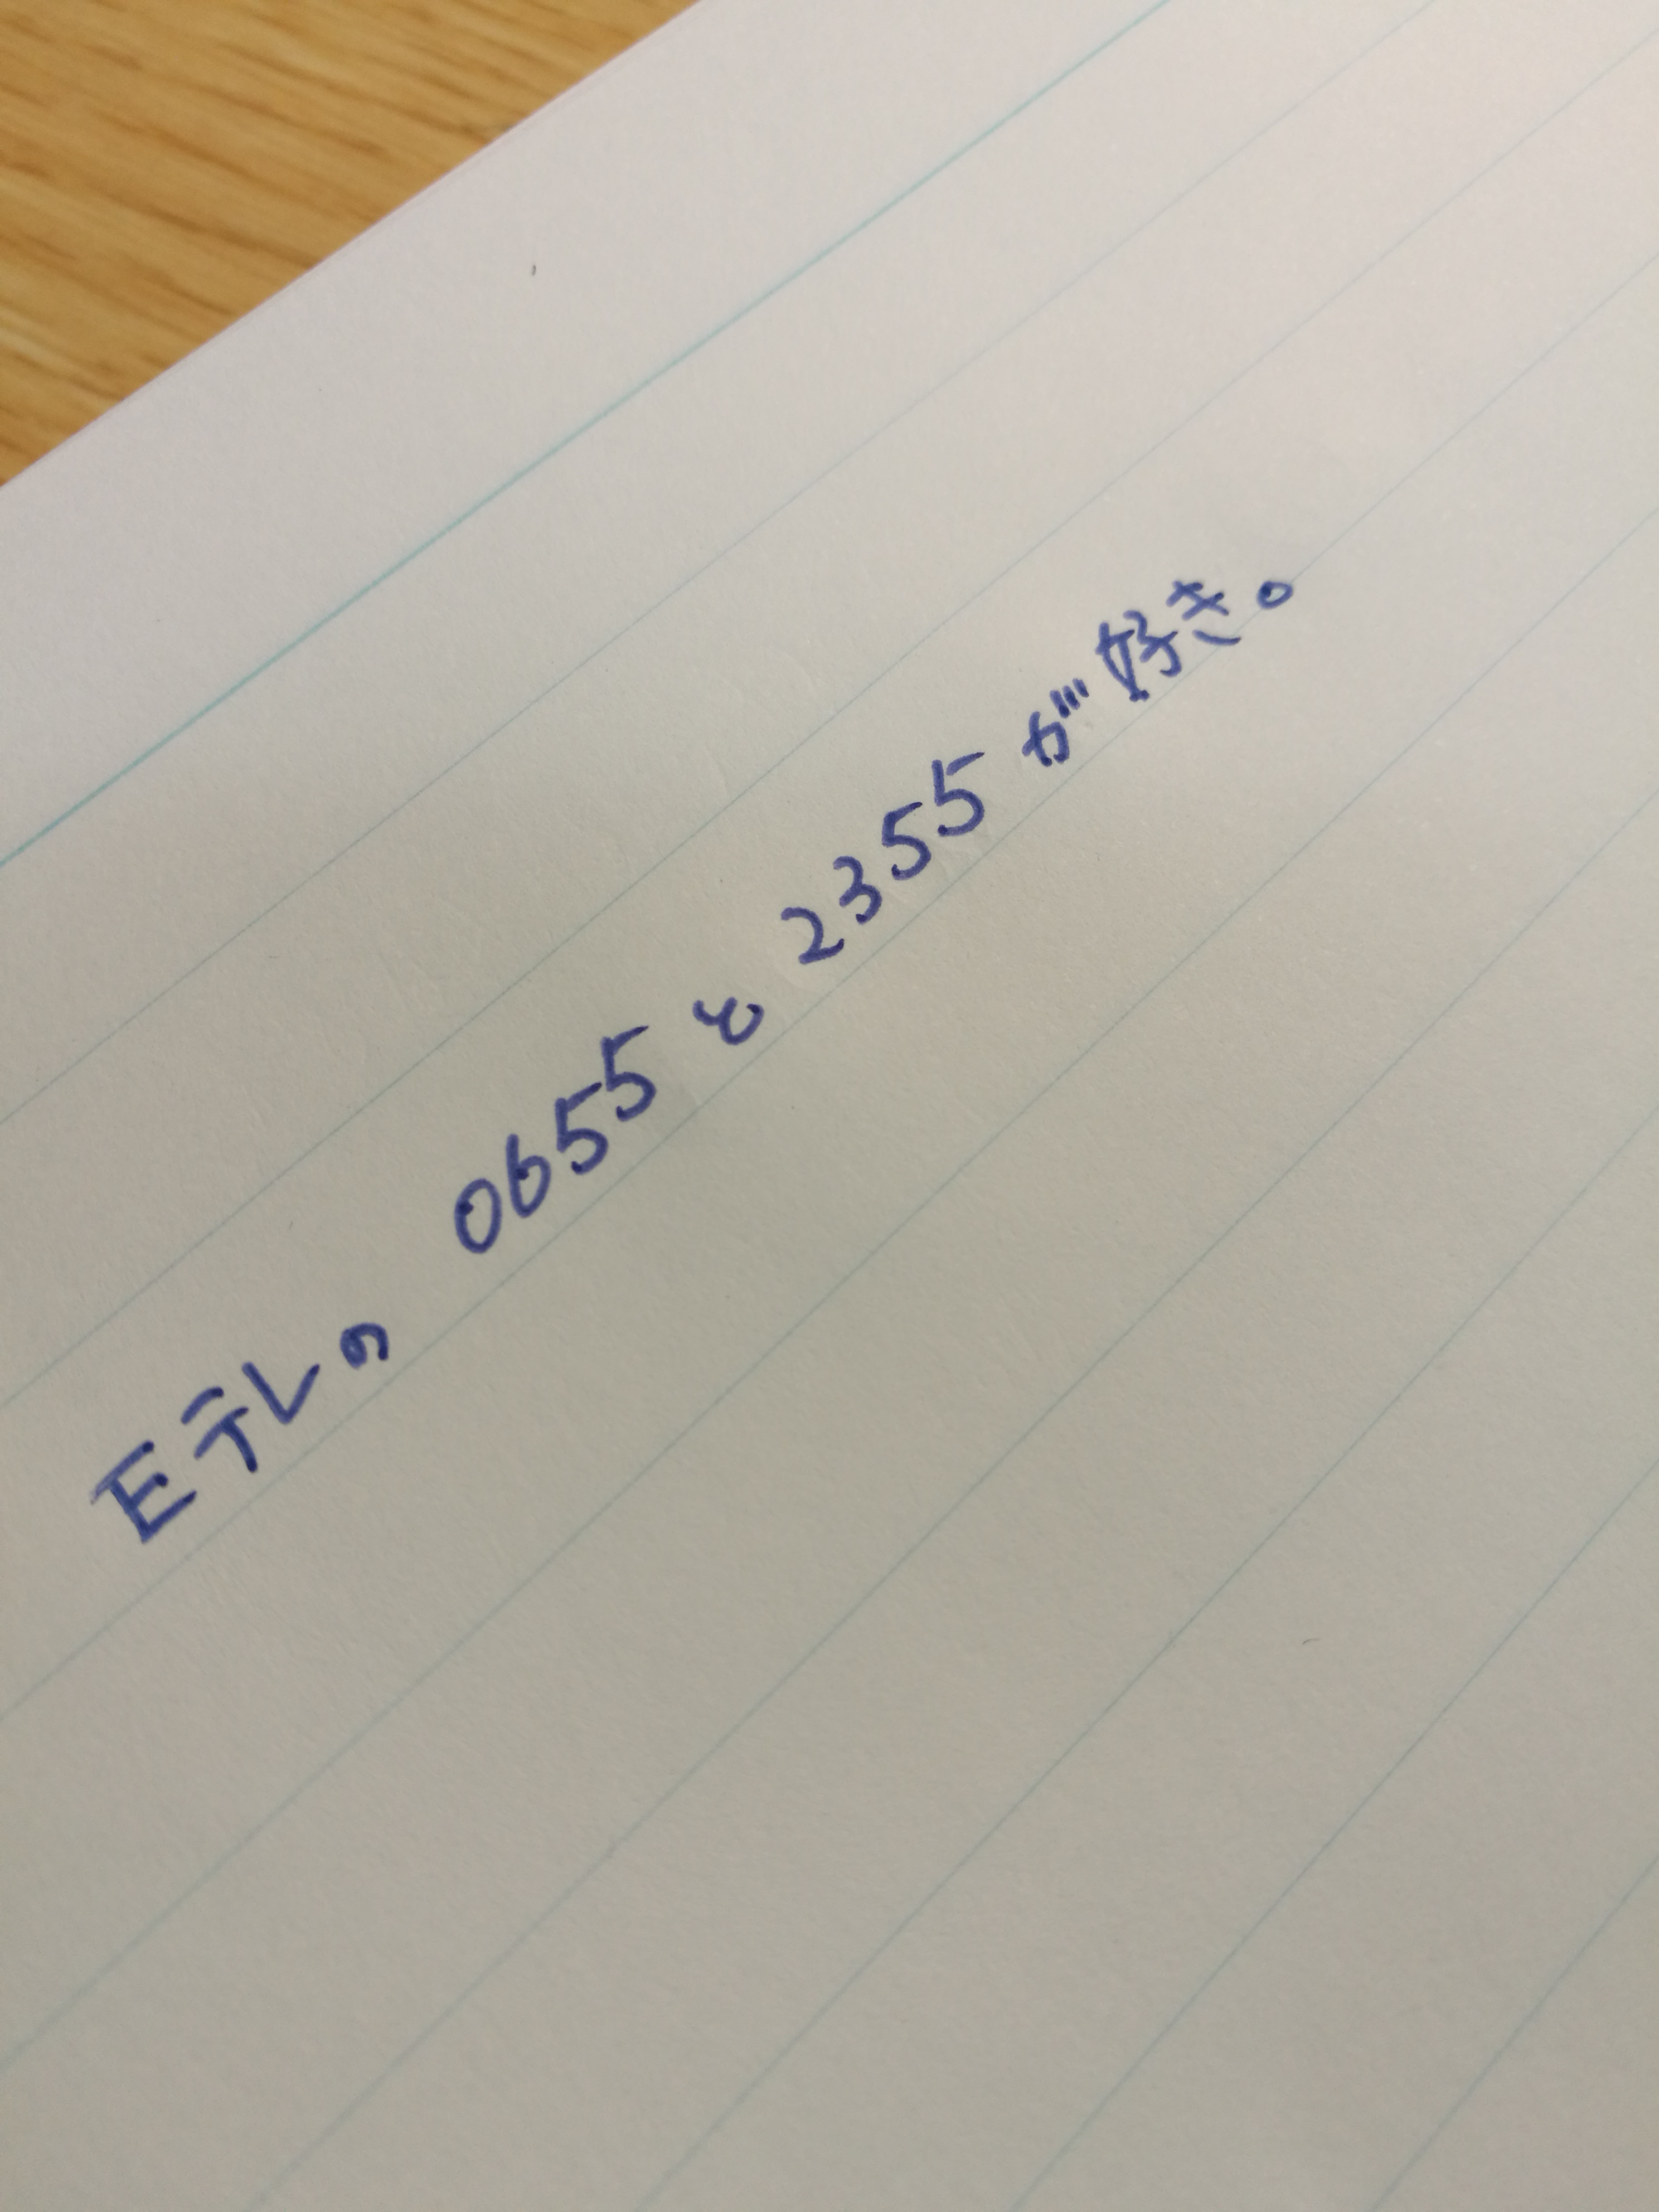 Eテレの 0655 と 2355 が好き。